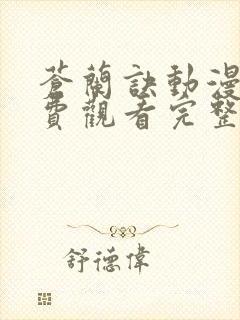 蒼蘭訣動漫
費觀看完整
舒德偉